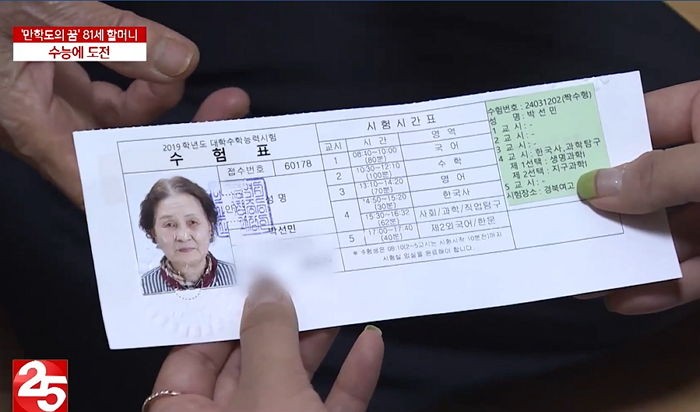 '만학도의 꿈' 81세 할머니
수능에 도전
2019학년도 대학수학능력시험
수 험 표
접수번호 60178
성 명
박선민
시 험 시 간 표
교시 시 간 영 역
1 08:40~10:00 (80분) 국 어
2 10:30~12:10 (100분) 수 학
3 13:10~14:20 (70분) 영 어
4 14:50~15:20 (30분) 한국사
15:30~16:32 (62분) 사회/과학/직업탐구
5 17:00~17:40 (40분) 제2외국어/한문
※ 수험생은 08:10(2~5교시는 시험시작 10분전)까지
시험실 입실을 완료해야 합니다.
수험번호 : 24031202(짝수형)
성 명 : 박 선 민
1 교 시 : -
2 교 시 : -
3 교 시 : -
4 교 시 : 한국사,과학탐구
제 1선택 : 생명과학Ⅰ
제 2선택 : 지구과학Ⅰ
5 교 시 : -
시험장소 : 경북여고
25